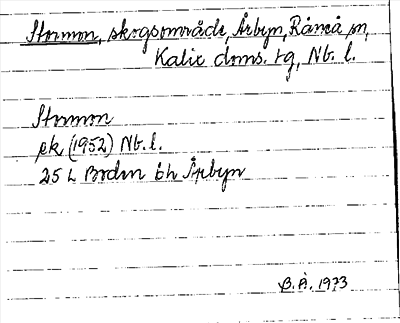 Stormon, skogsområde, Årbyn, Råneå sn,
Kalix doms. tg, Nb. l.
Stormon
ek (1952) Nb. l.
25 L Boden bh Årbyn
B. Å. 1973